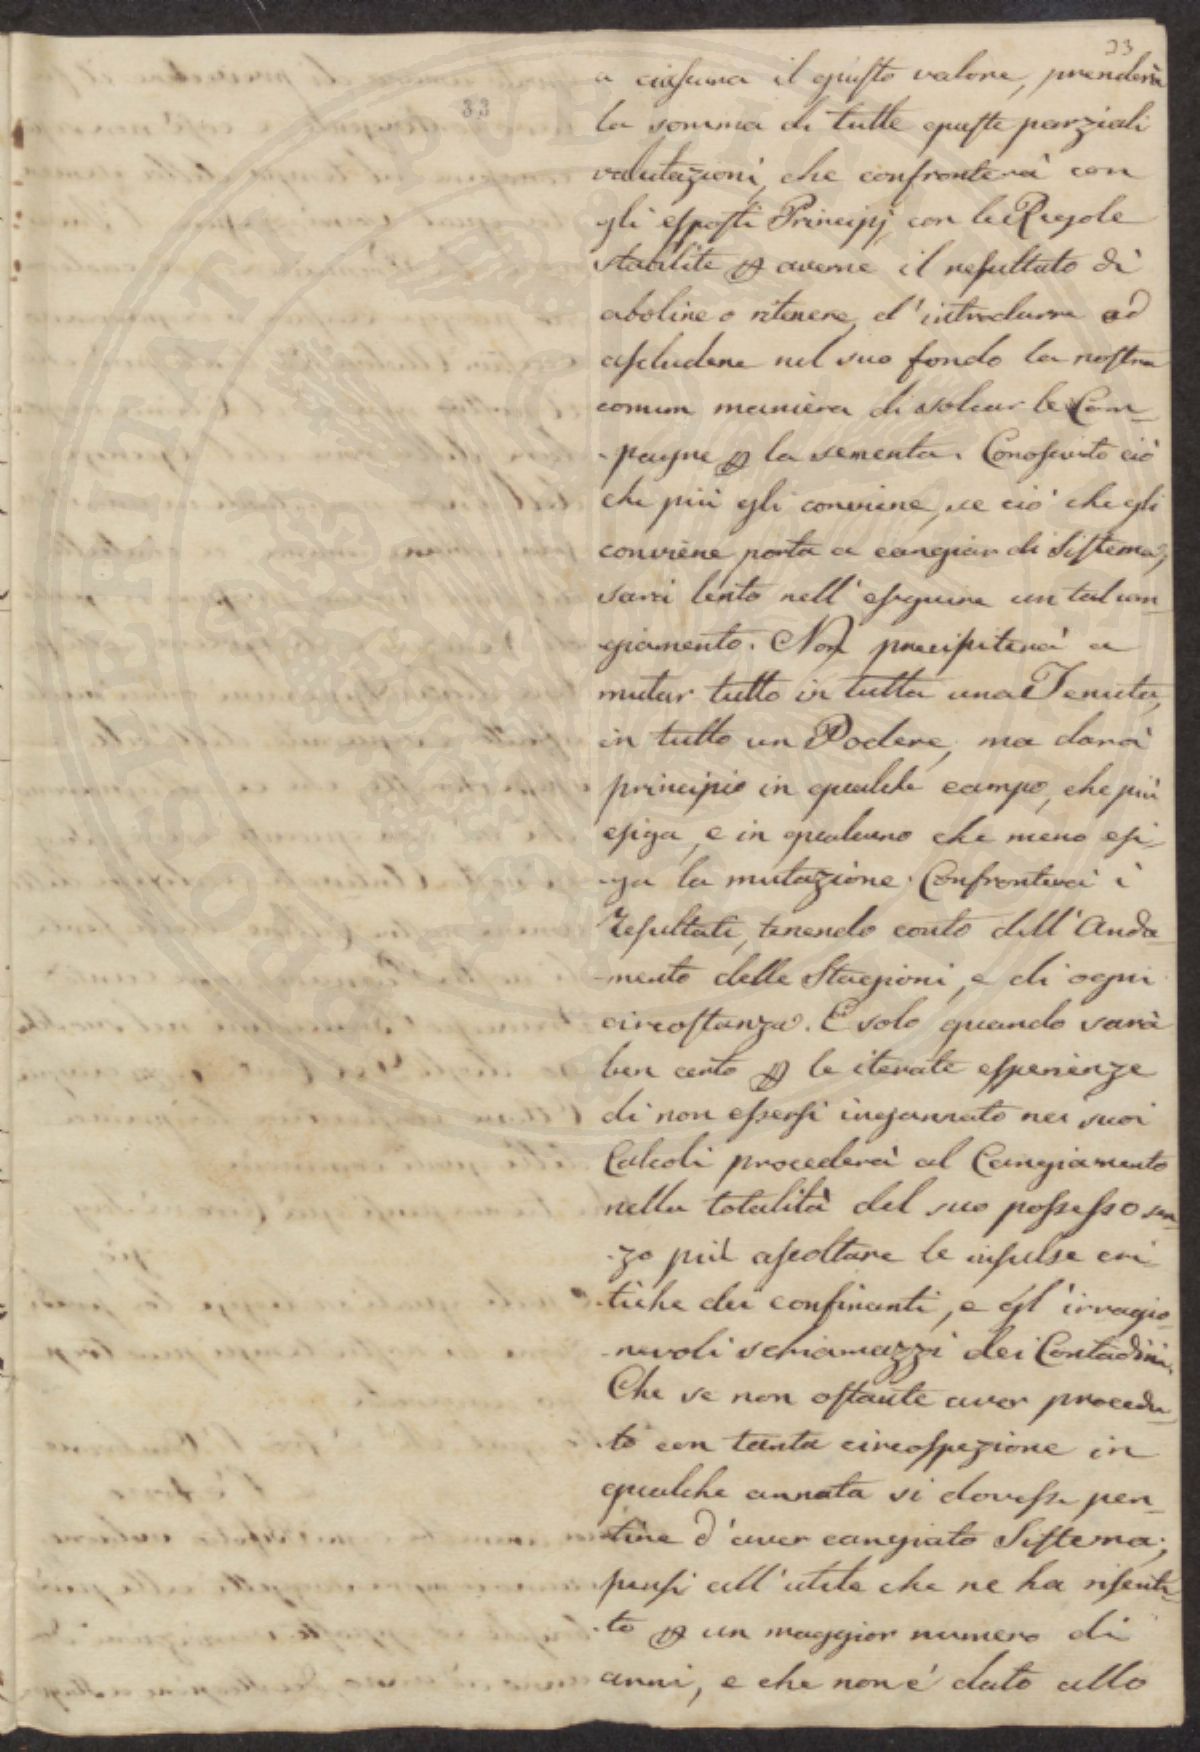 23
33
a ciascuna il giusto valore, prenderà
la somma di tutte queste parziali
valutazioni, che confronterà con
gli esposti Principj, con le Regole
stabilite p averne il resultato di
abolire o ritenere, d'introdurre od
escludere nel suo fondo la nostra
comun maniera di solcar le Cam-
-pagne p la sementa. Conosciuto ciò
che più gli conviene, se ciò che gli
conviene porta a cangiar di Sistema,
sarà lento nell'eseguire un tal can-
giamento. Non precipiterà a
mutar tutto in tutta una Tenuta,
in tutto un Podere, ma darà
principio in qualche campo, che più
esiga, e in qualcuno che meno esi-
-ga la mutazione. Confronterà i
resultati, tenendo conto dell'Anda-
-mento delle Stagioni, e di ogni
circostanza. E solo quando sarà
ben certo p le iterate esperienze
di non essersi ingannato nei suoi
Calcoli procederà al Cangiamento
nella totalità del suo possesso sen-
-za più ascoltare le insulse cri-
-tiche dei confinanti, e gl'irragio-
-nevoli schiamazzi dei Contadini.
Che se non ostante aver procedu-
-to con tanta circospezione in
qualche annata si dovesse pen-
-tire d'aver cangiato Sistema,
pensi all'utile che ne ha risenti-
-to p un maggior numero di
anni, e che non è dato allo